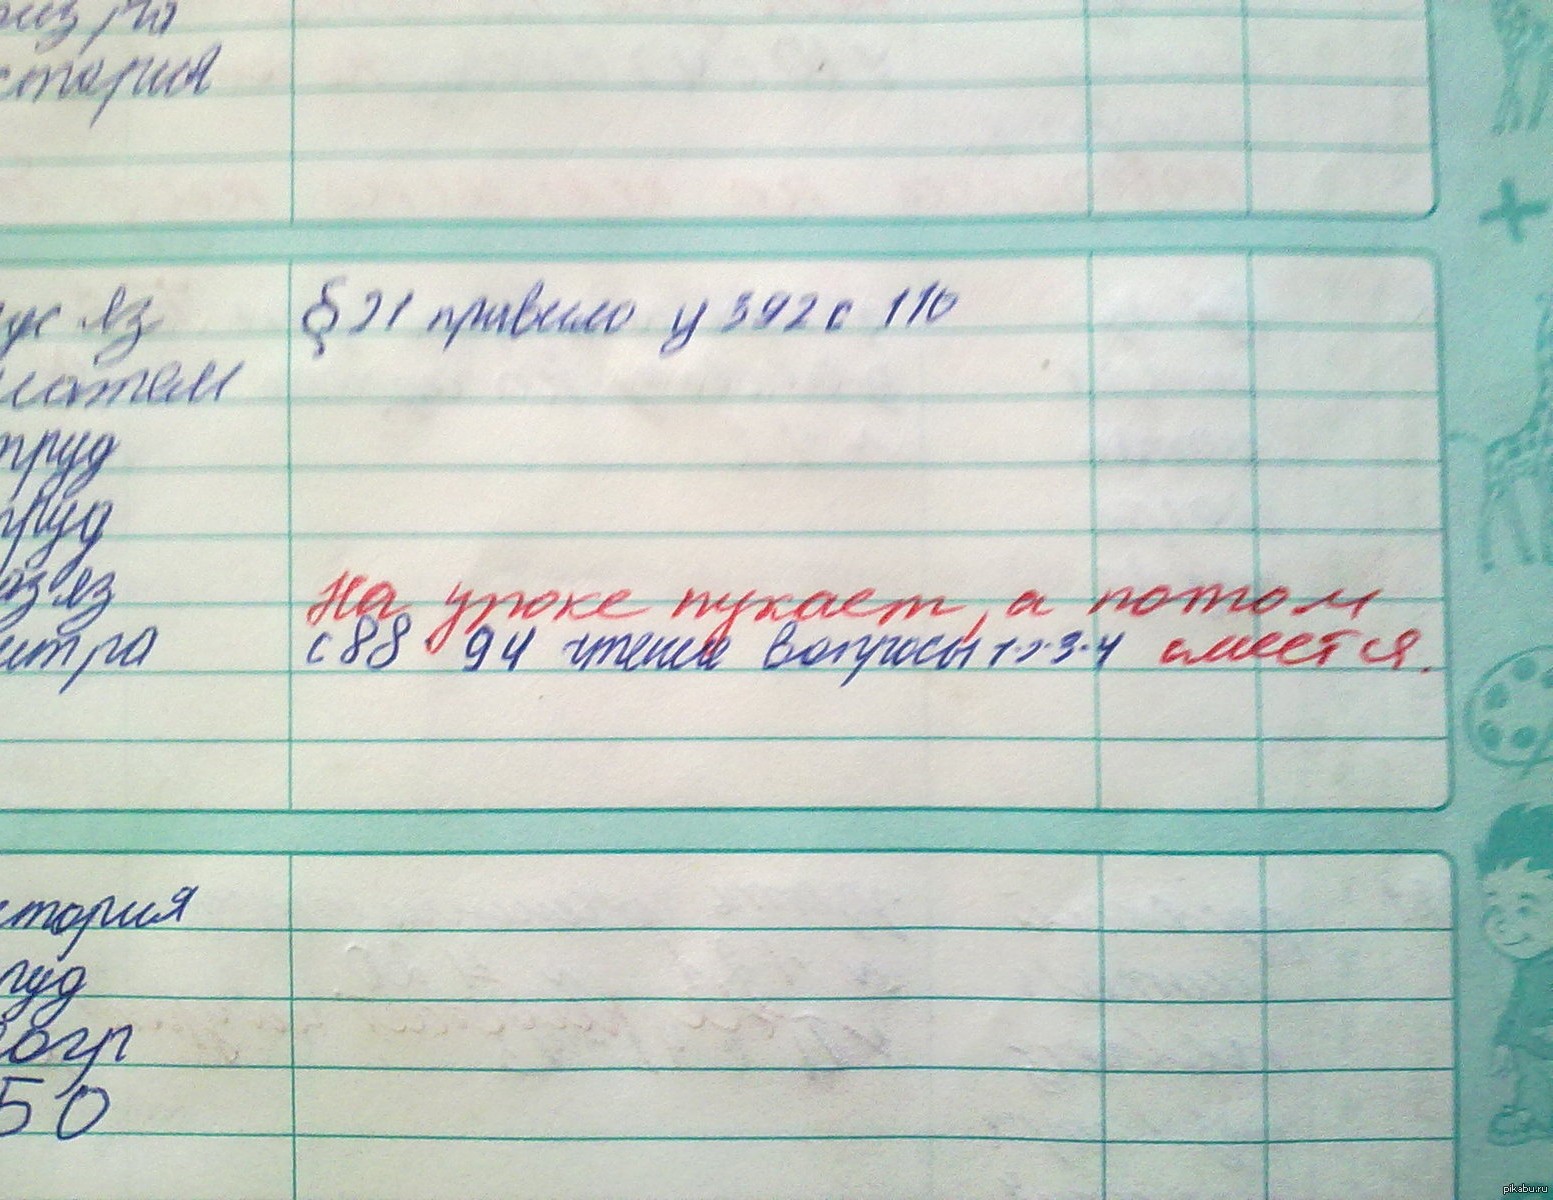 физ ра
история
рус яз § 21 правило у 392 с 110
матем
труд
труд
каз яз На уроке пукает, а потом
литра с 88 94 чтение вопросы 1-2-3-4 смеется.
история
труд
геогр
БО
pikabu.ru